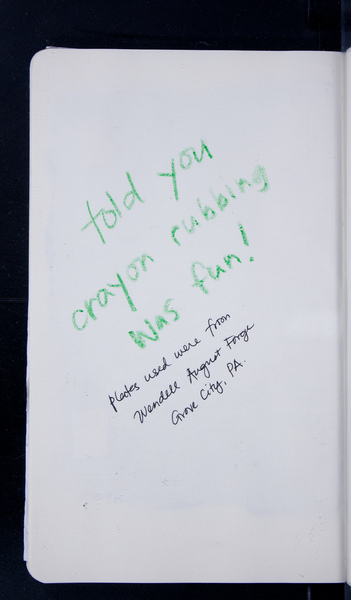 told you
crayon rubbing
was fun!
plates used were from
Wendell August Forge
Grove City, PA.